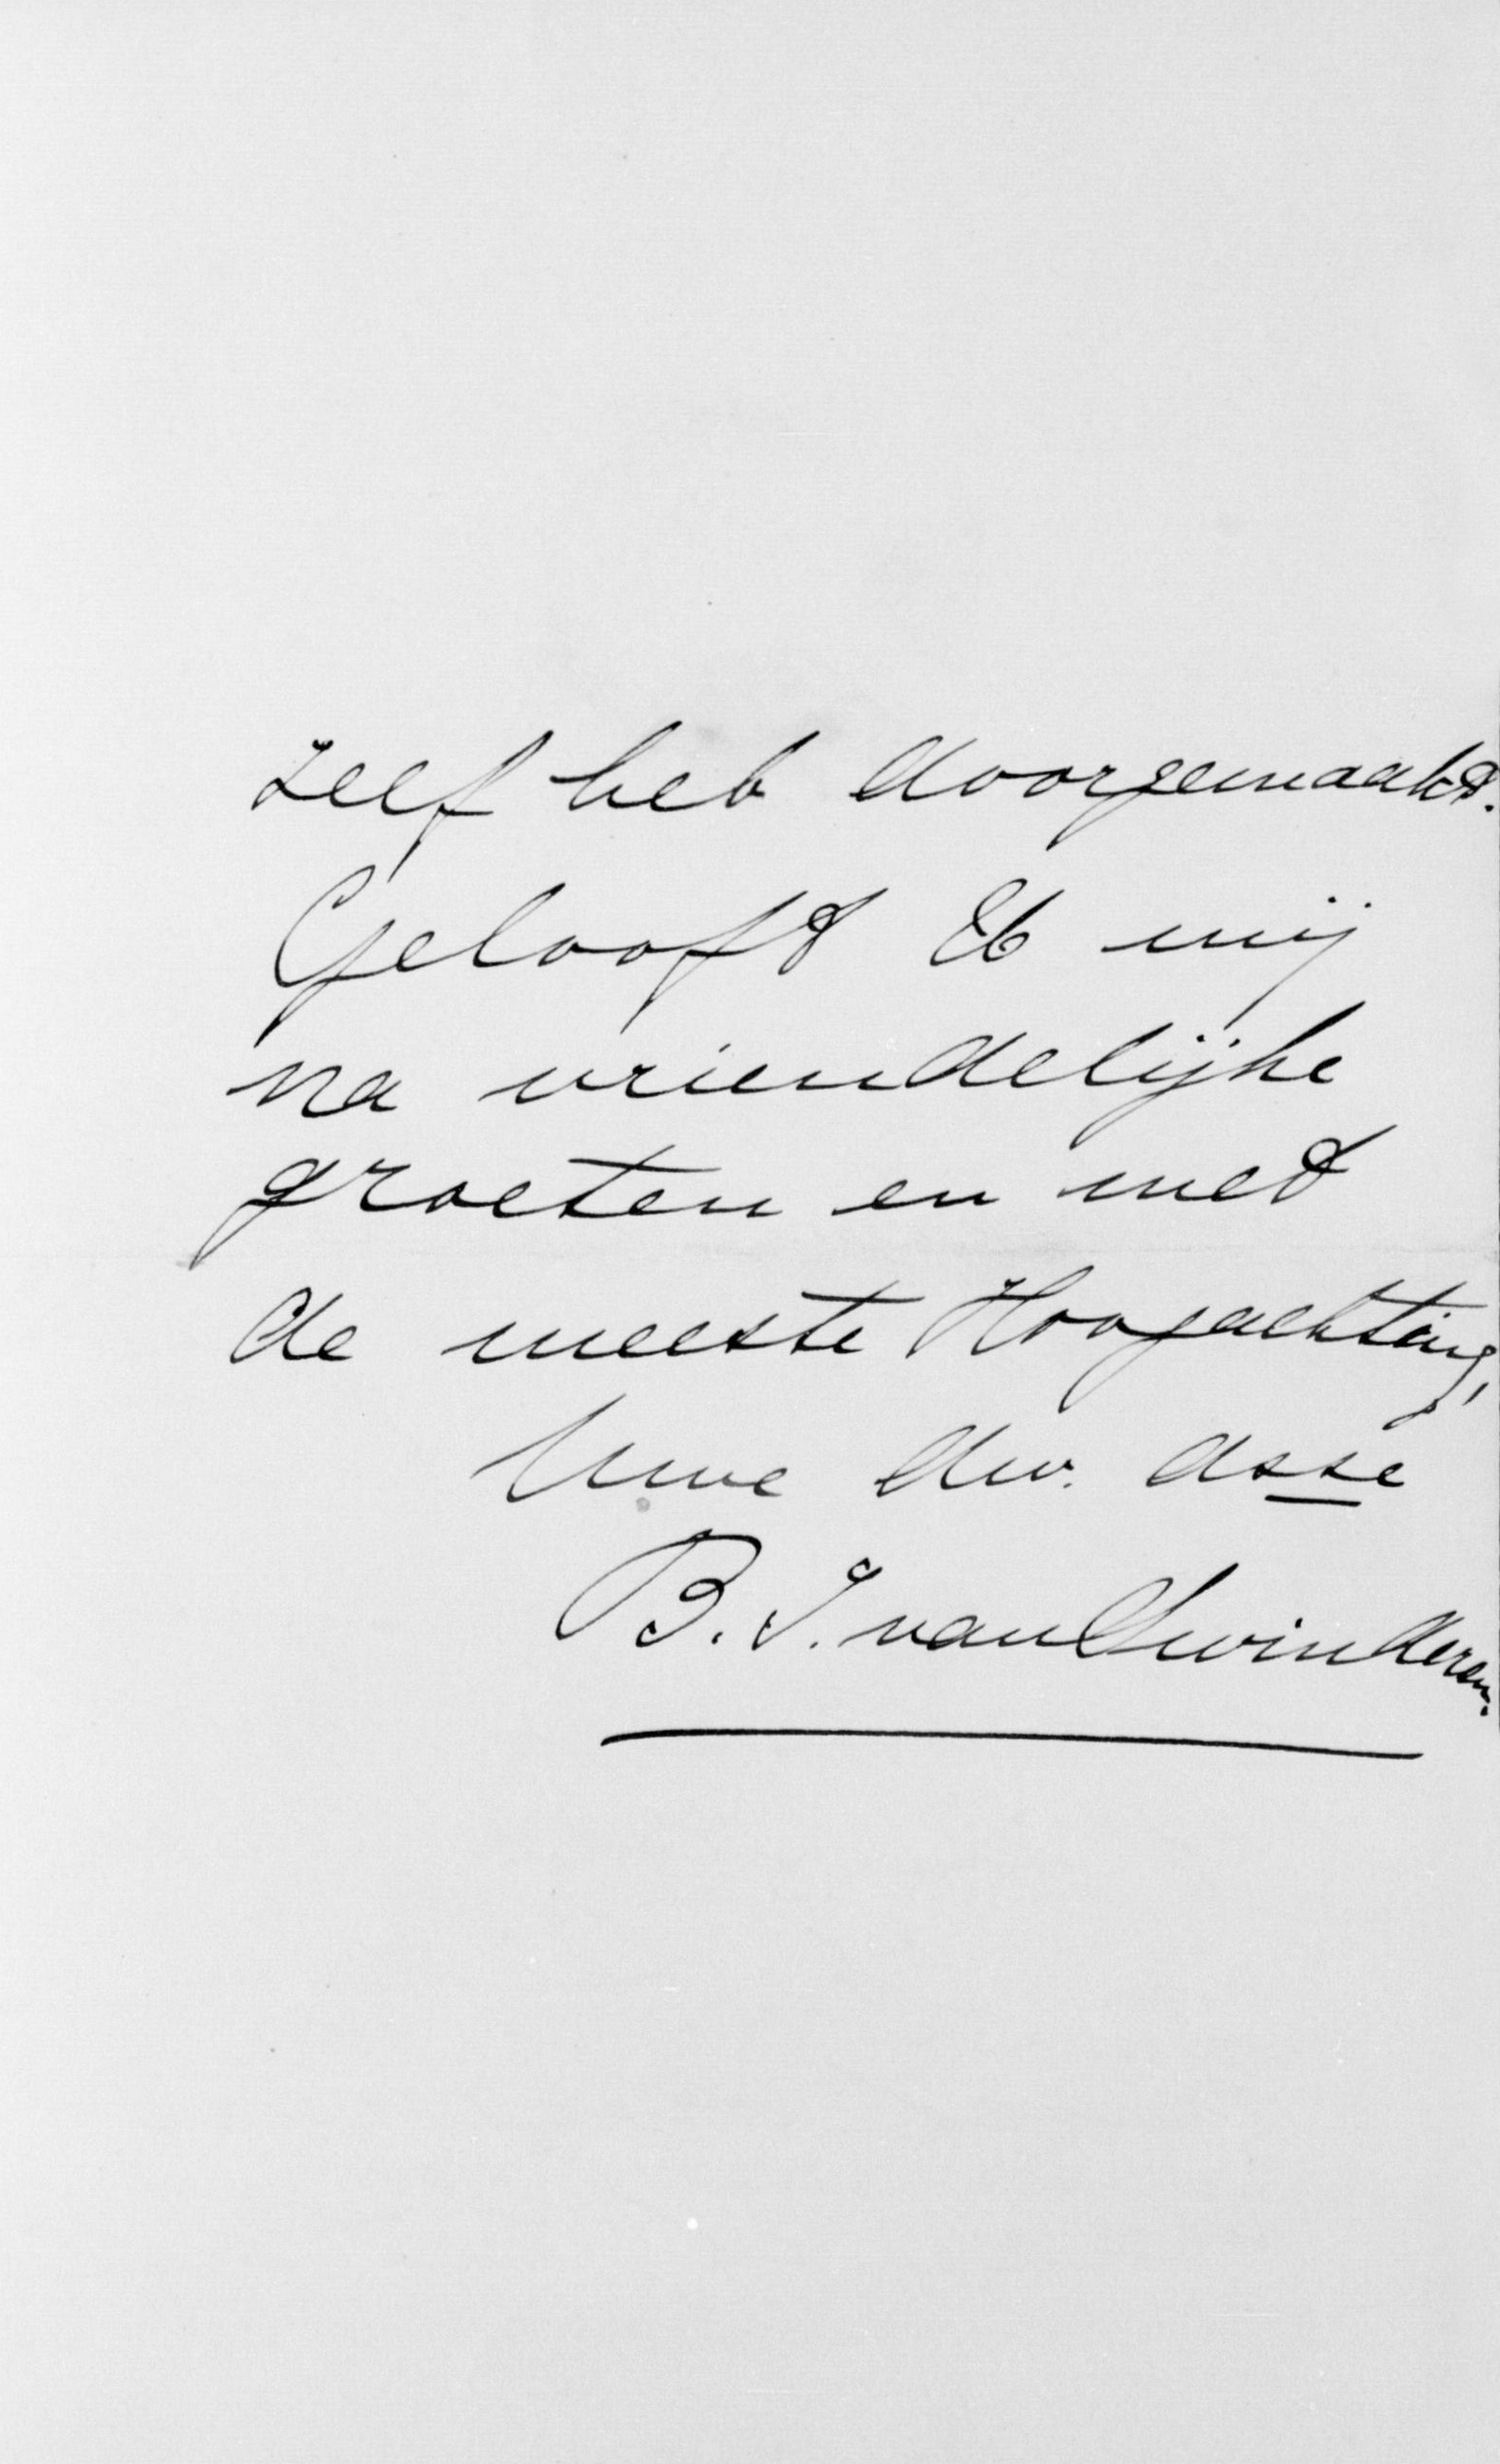 zelf heb doorgemaakt.
Gelooft U mij
na vriendelijke
groeten en met
de meeste Hoogachting,
Uwe dw. dsse
B. J. van Swinderen.